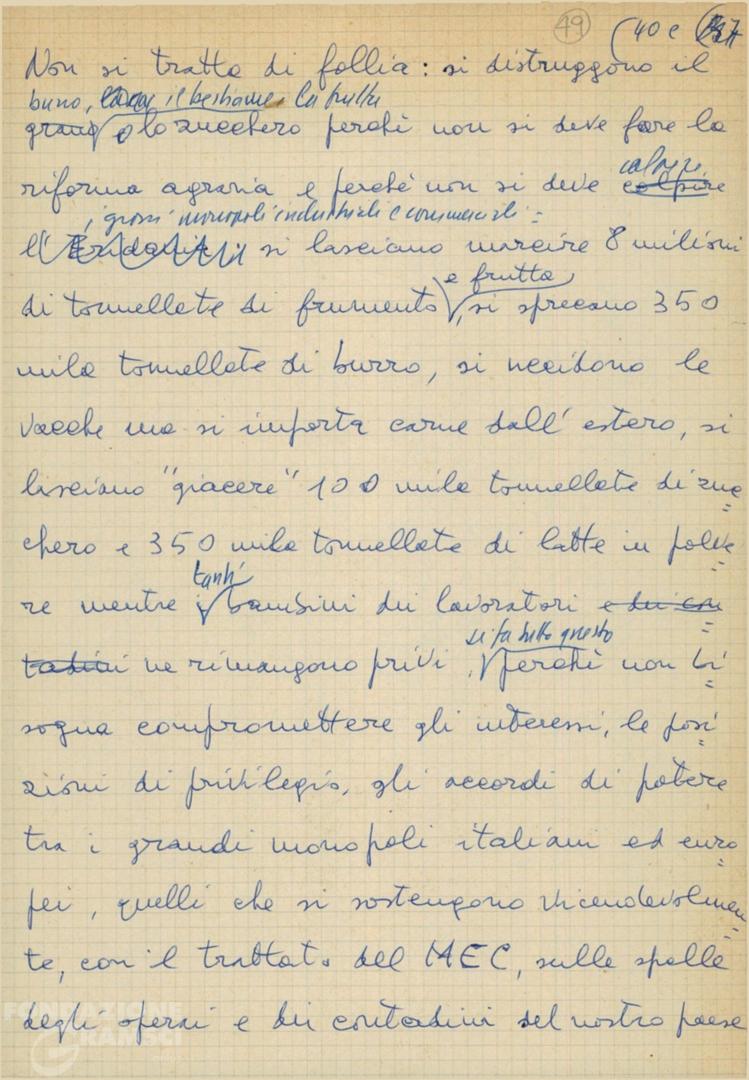 49 (40 e
Non si tratta di follia: si distruggono il
burro, il bestiame, la frutta
grano e lo zucchero perchè non si deve fare la
riforma agraria e perchè non si deve colpire
i grossi monopoli industriali e commerciali:
l'Eridania si lasciano marcire 8 milioni
e frutta
di tonnellate di frumento, si sprecano 350
mila tonnellate di burro, si uccidono le
vacche ma si importa carne dall'estero, si
lasciano "giacere" 100 mila tonnellate di zuc=
chero e 350 mila tonnellate di latte in polve=
tanti
re mentre i bambini dei lavoratori e dei con=
si fa tutto questo
tadini ne rimangono privi, perchè non bi=
sogna compromettere gli interessi, le posi=
zioni di privilegio, gli accordi di potere
tra i grandi monopoli italiani ed euro=
pei, quelli che si sostengono vicendevolmen=
te, con il trattato del MEC, sulle spalle
degli operai e dei contadini del nostro paese
FONDAZIONE
GRAMSCI